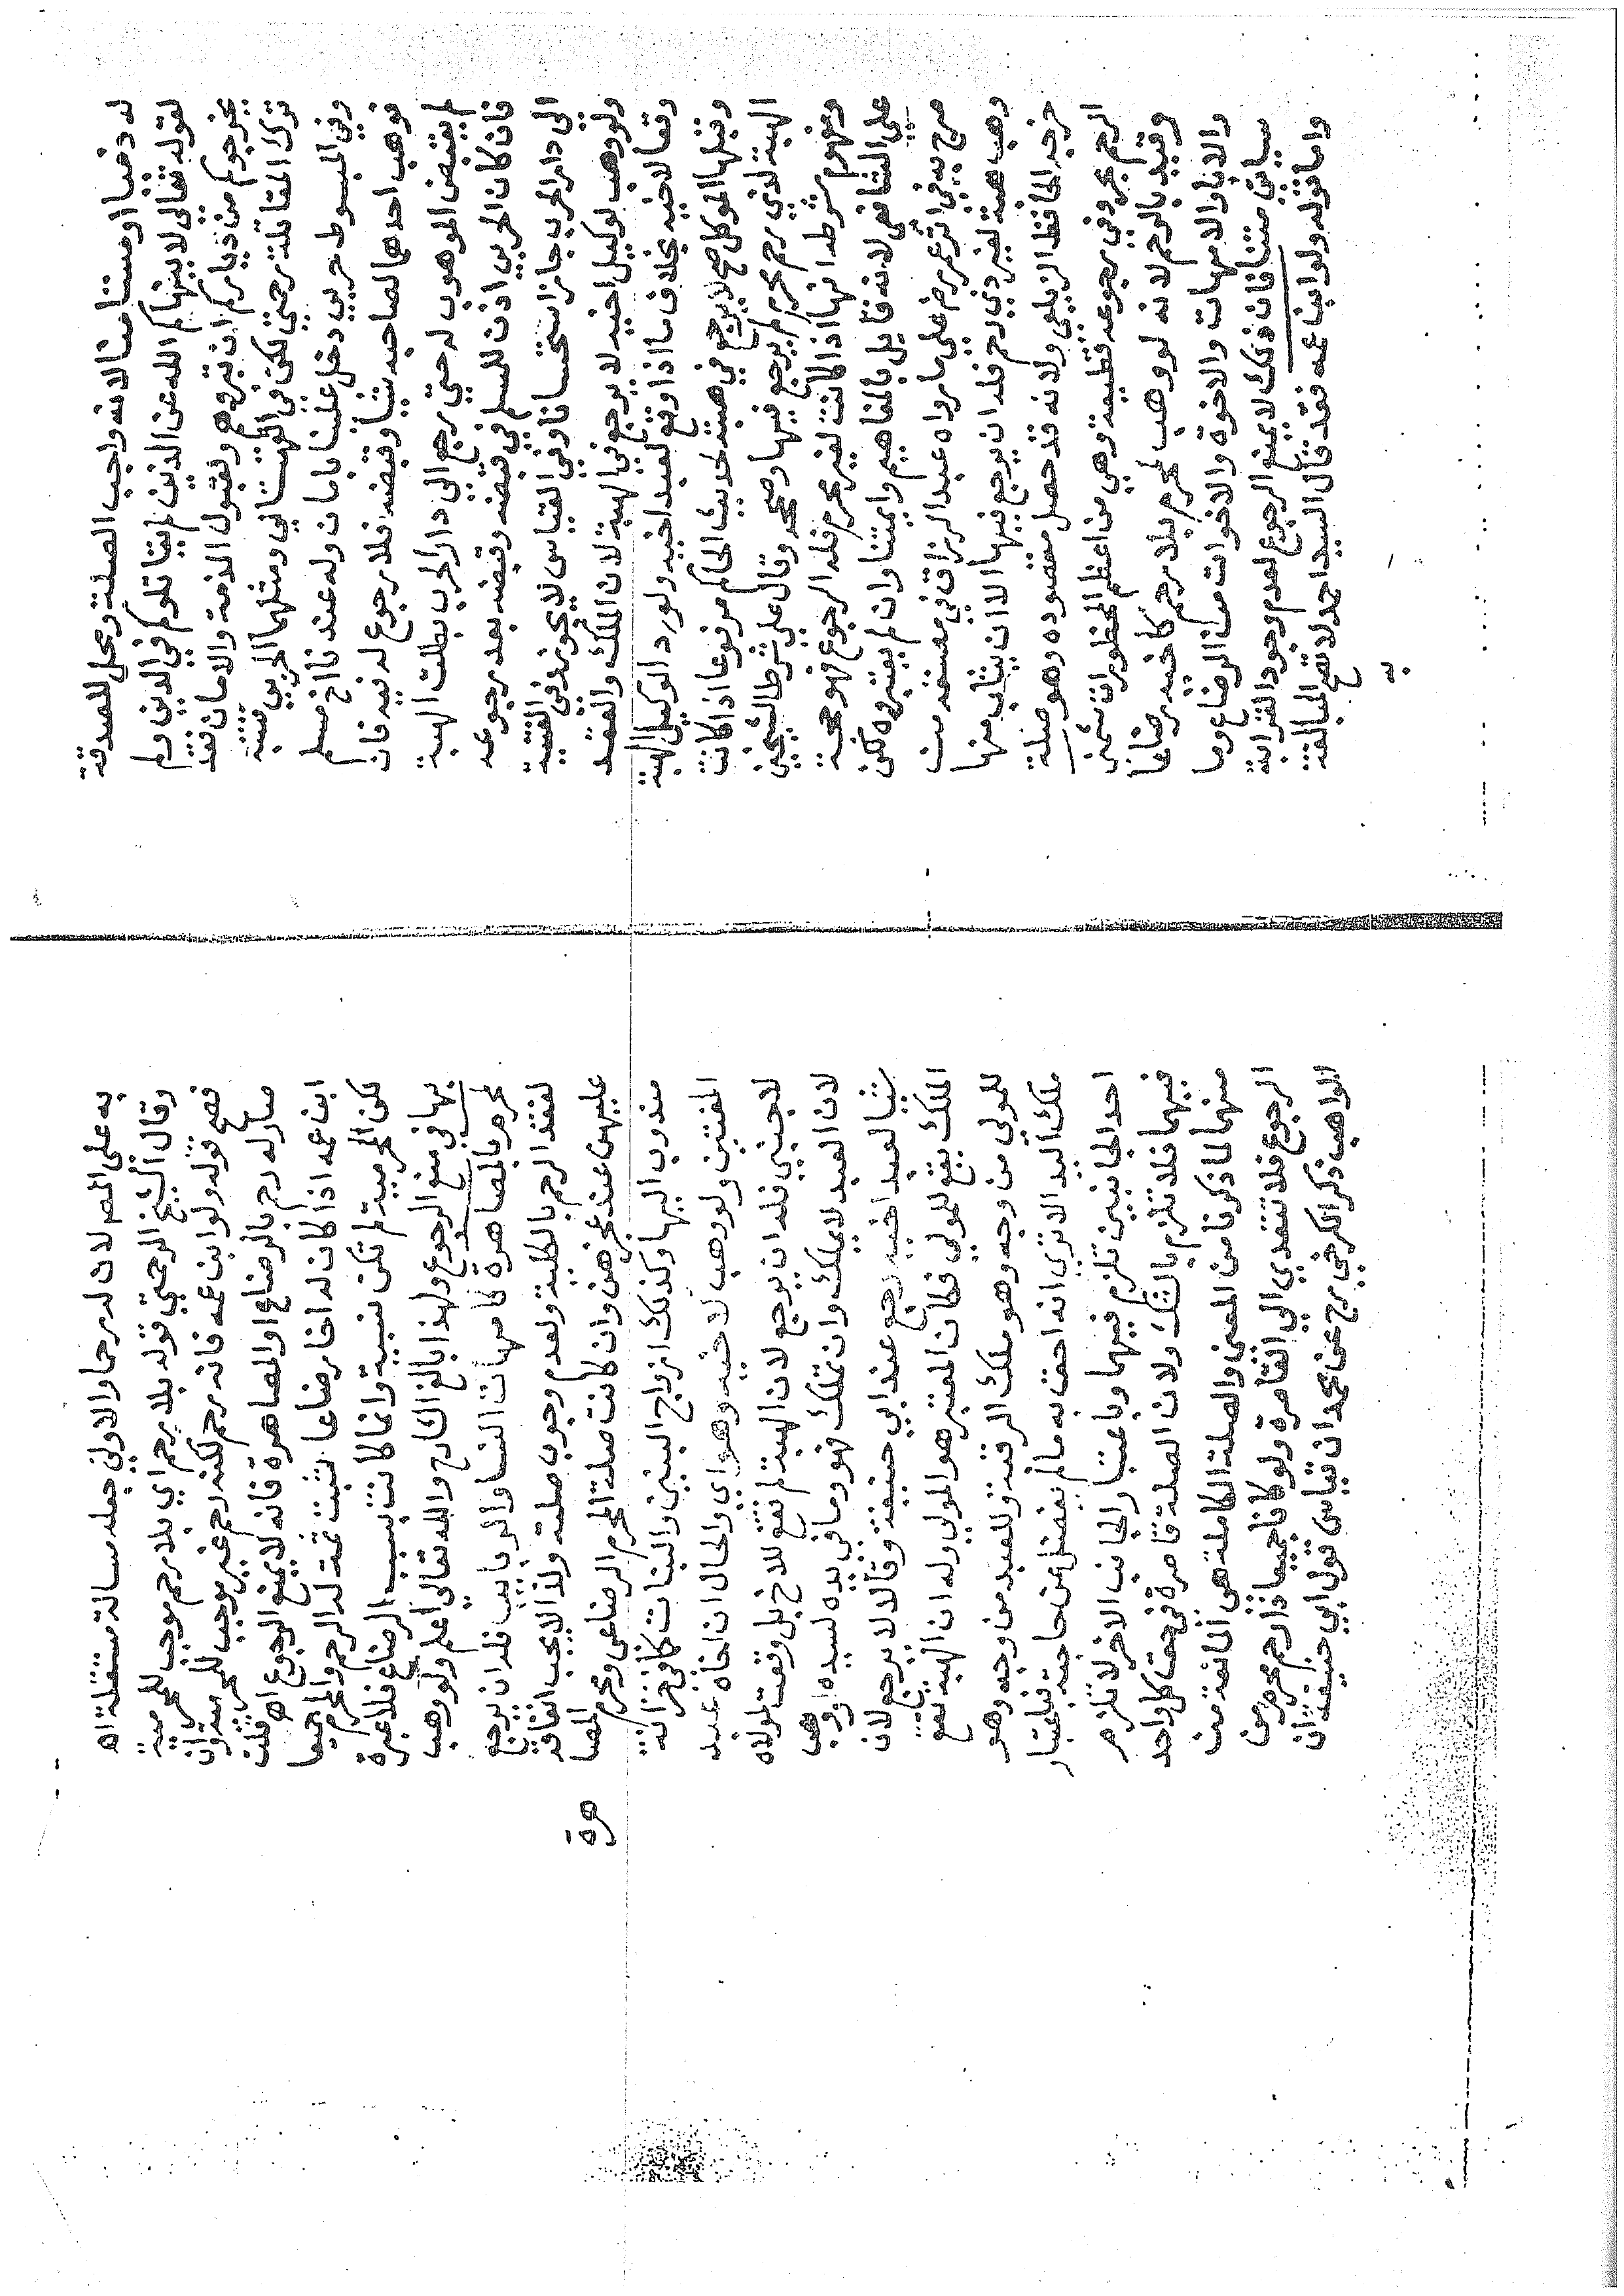 له ذميا او مستامنا لانه واجب الصلة ومحل للصدقة
لقوله تعالى لا ينهاكم الله عن الذين لم يقاتلوكم في الدين ولم
يخرجوكم من دياركم ان تبروهم وبقبول الذمة والامان فقد
ترك المقاتلة رحمتي لكن في القهستاني ومثلهما الحربي
وفي المبسوط حربي دخل علينا بامان وله عندنا اخ مسلم
فوهب احدهما لصاحبه شيأ وقبضه فلا رجوع له فيه فان
لم يقبض الموهوب له حتي رجع الي دار الحرب بطلت الهبة
فان كان الحربي اذن للمسلم في قبضه وقبضه بعد رجوعه
الي دار الحرب جاز استحسانا وفي القياس لا يجوز
ولو وهب لوكيل اخيه لا يرجع في الهبة لان الملك والعقد
وقعا لاخيه بخلاف ما اذا وقع لعبد اخيه ولو رد الوكيل الهبة
وقبلها الموكل صح لا يرجع في هبته لحديث الحاكم مرفوعا اذا كانت
الهبة لذي رحم محرم لم يرجع فيها وصححه وقال علي شرط الشيخين
ومفهوم شرطه انها اذا كانت لغير محرم فله الرجوع فهو حجة
علي الشافعي لانه قايل بالمفاهيم وايمتنا وان لم يعتبروه لكن
صرح به في اثر عمر رضي علي ما رواه عبد الرزاق في مصنفه من
وهب هبة لغير ذي رحم فله ان يرجع فيها الا ان يثاب منها
خرجه الحافظ الزيلعي ولانه قد حصل مقصوده وهو صلة
الرحم بحر وفي رجوعه قطيعة وهي من اعظم المحظورات شمني
وقيد بالرحم لانه لو وهب لمحرم بلا رحم كاخيه رضاعا
والابا والامهات والاخوة والاخوات من الرضاع وما
سياتي متنا فان ذلك لا يمنع الرجوع لعدم وجود القرابة
واما قوله ولو ابن عمه فقد قال السيد احمد لا تصح المبالغة
به
به علي المص لان له رحما والاولي جعله مسالة مستقلة اه
وقال الشيخ الرحمتي قوله بلا رحم اي بلا رحم موجب للمحرمية
فصح قوله ولو ابن عمه فانه رحم لكنه رحم غير موجب للمحرمية وان
صار له رحم بالرضاع او المصاهرة فانه لا يمنع الرجوع اه قلت
ابن عمه اذا كان له اخا رضاعا ثبت ثمة له الرحم والمحرم جميعا
لكن المحرمية لم تكن نسبية وانما كانت بسبب الرضاع فلا عبرة
بها في منع الرجوع ولهذا بالغ الشارح والله تعالي اعلم ولو وهب
لمحرم بالمصاهرة كامهات النسا والربايب فله ان يرجع
لفقد الرحم بالكلية ولعدم وجوب صلته ولذا لا يجب انفاقه
عليهن عند عجزهن وان كانت صلة المحرم الرضاعي ومحرم المصا
هرة
مندوب اليها وكذلك ازواج البنين والبنات كما في خزانة
المفتين ولو وهب لاخيه وهو اي والحال ان اخاه عبد
لاجنبي فله ان يرجع لان الهبة لم تقع للاخ بل وقعت لمولاه
لان العبد لا يملك وان تملك فهو وما في يده لسيده او وهب
شيئا لعبد اخيه رجع عند ابي حنيفة وقالا لا يرجع لان
الملك يقع للمولي فكان المعتبر هو المولي وله ان الهبة تقع
للمولي من وجه وهو ملك الرقبة وللعبد من وجه وهو
ملك اليد الا تري انه احق به ما لم يفضل عن حاجته فباعتبار
احد الجانبين تلزم فيهما وباعتبار الجانب الاخر لا تلزم
فيهما فلا تلزم بالشك ولان الصلة قاصرة في حق كل واحد
منهما لما ذكرنا من المعني والصلة الكاملة هي المانعة من
الرجوع فلا تتعدي الي القاصرة ولو كانا جميعا ذا رحم محرم من
الواهب ذكر الكرخي رح عن محمد ان قياس قول ابي حنيفة ان